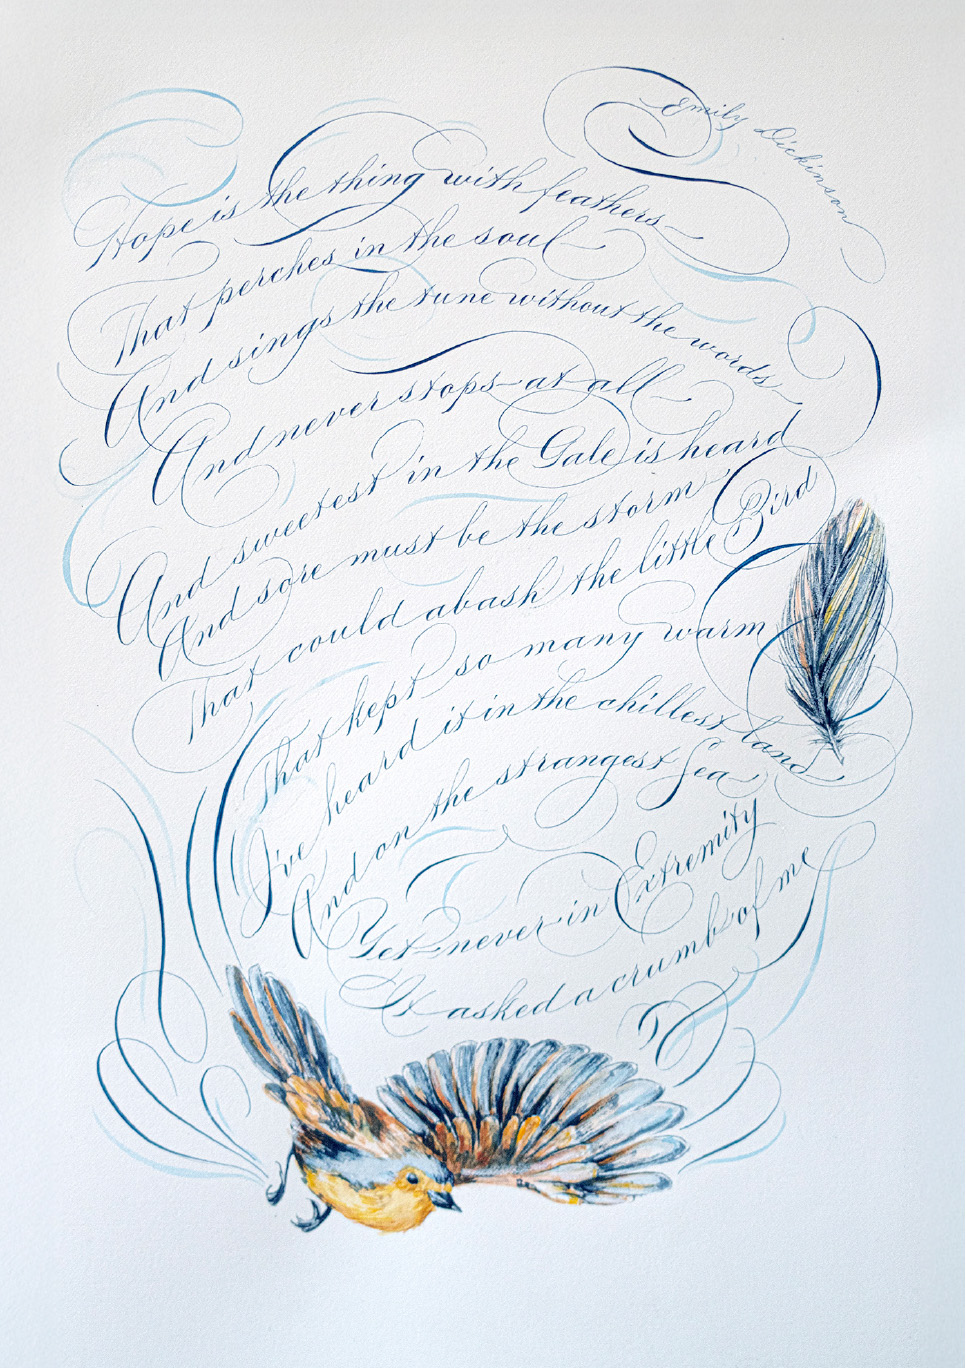 Emily Dickinson
Hope is the thing with feathers–
That perches in the soul–
And sings the tune without the words–
And never stops–at all–
And sweetest in the Gale is heard
And sore must be the storm–
That could abash the little Bird
That kept so many warm
I've heard it in the chillest land
And on the strangest Sea–
Yet–never–in Extremity
It asked a crumb–of me